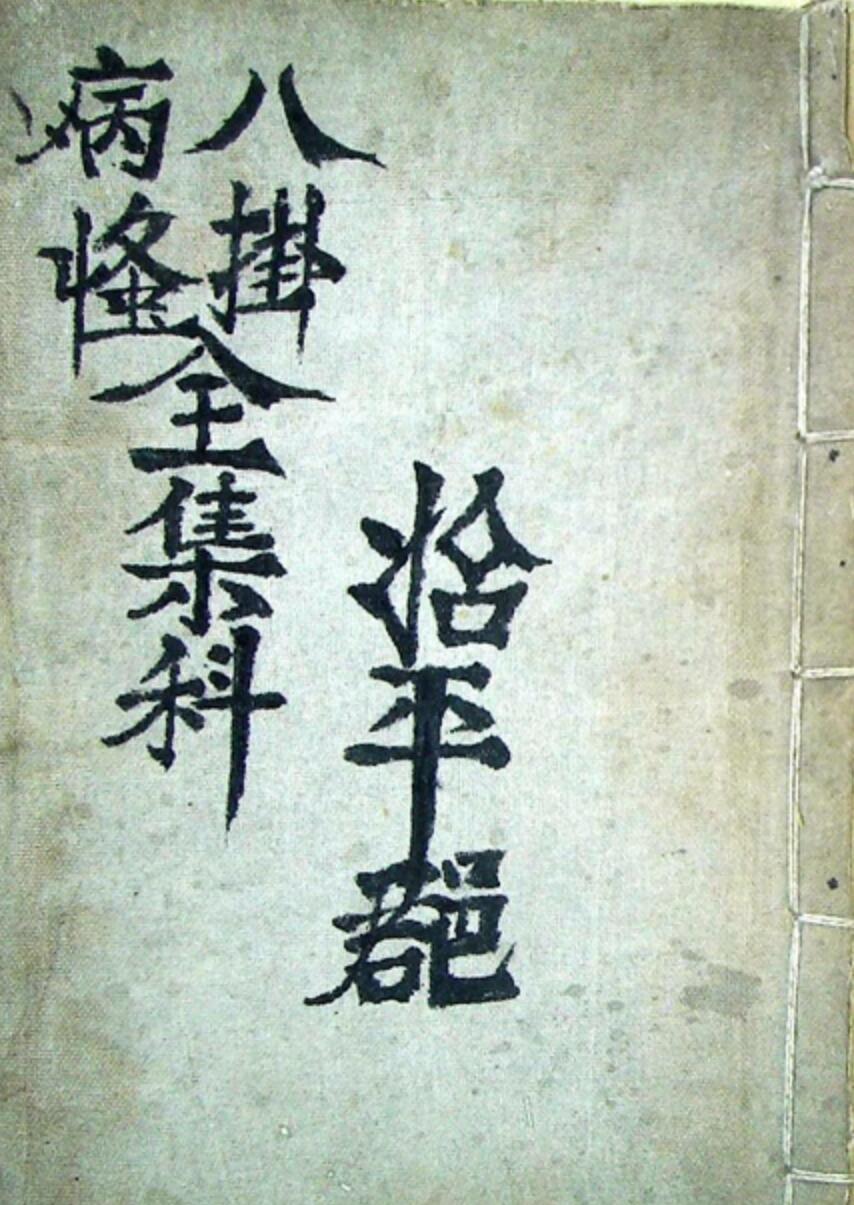 治平郡
八掛
病怪
全集科